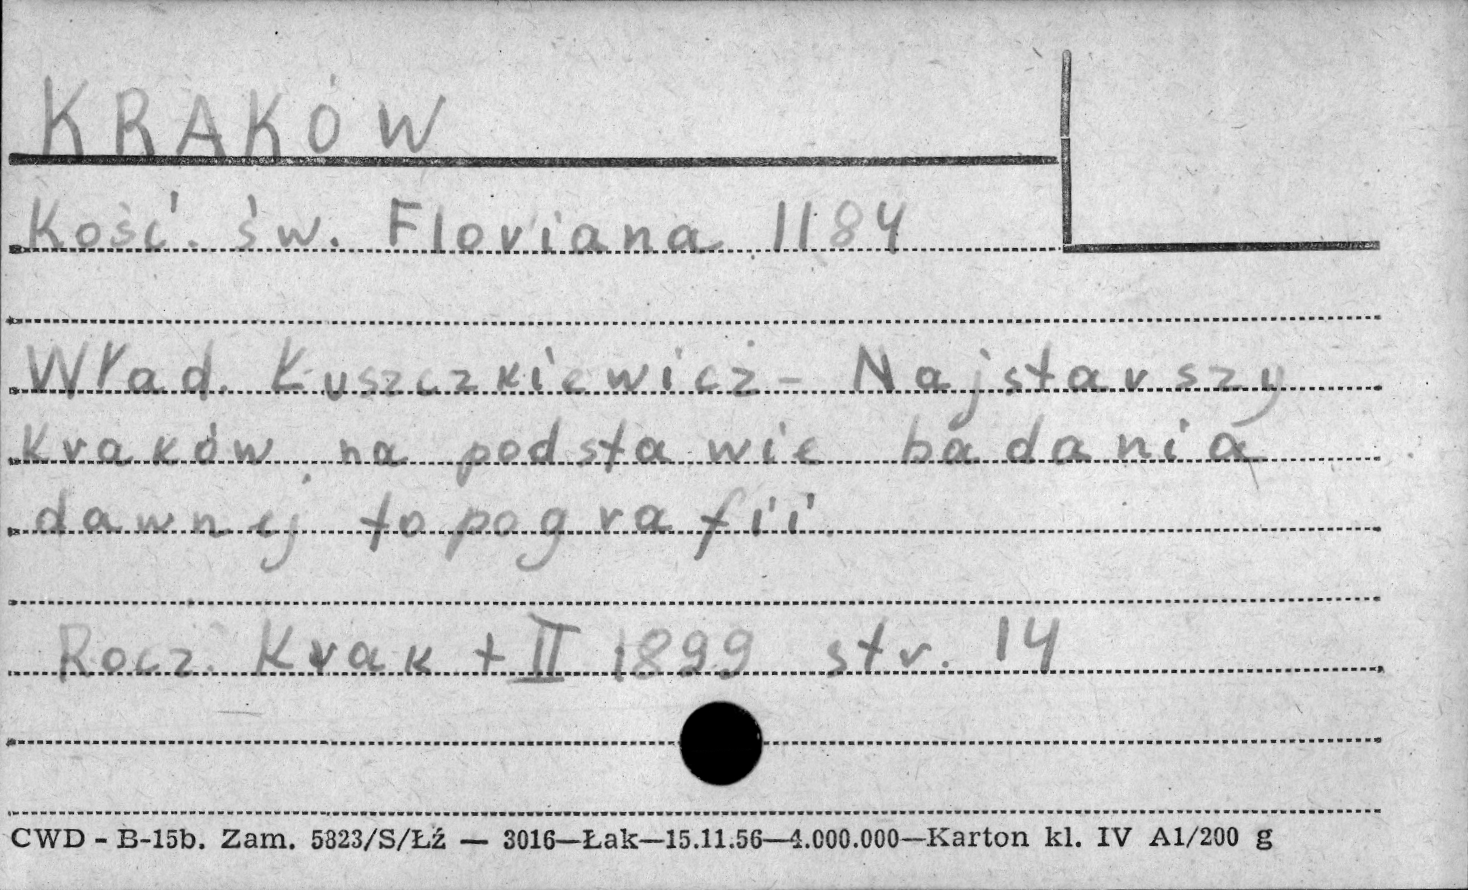 KRAKÓW
Kość. św. Floriana 1184
Wład. Łuszczkiewicz - Najstarszy
Kraków na podstawie badania
dawnej topografii
Rocz. Krak t II 1899 str. 14
CWD - B-15b. Zam. 5823/S/Łź — 3016—Łak—15.11.56—4.000.000—Karton kl. IV A1/200 g